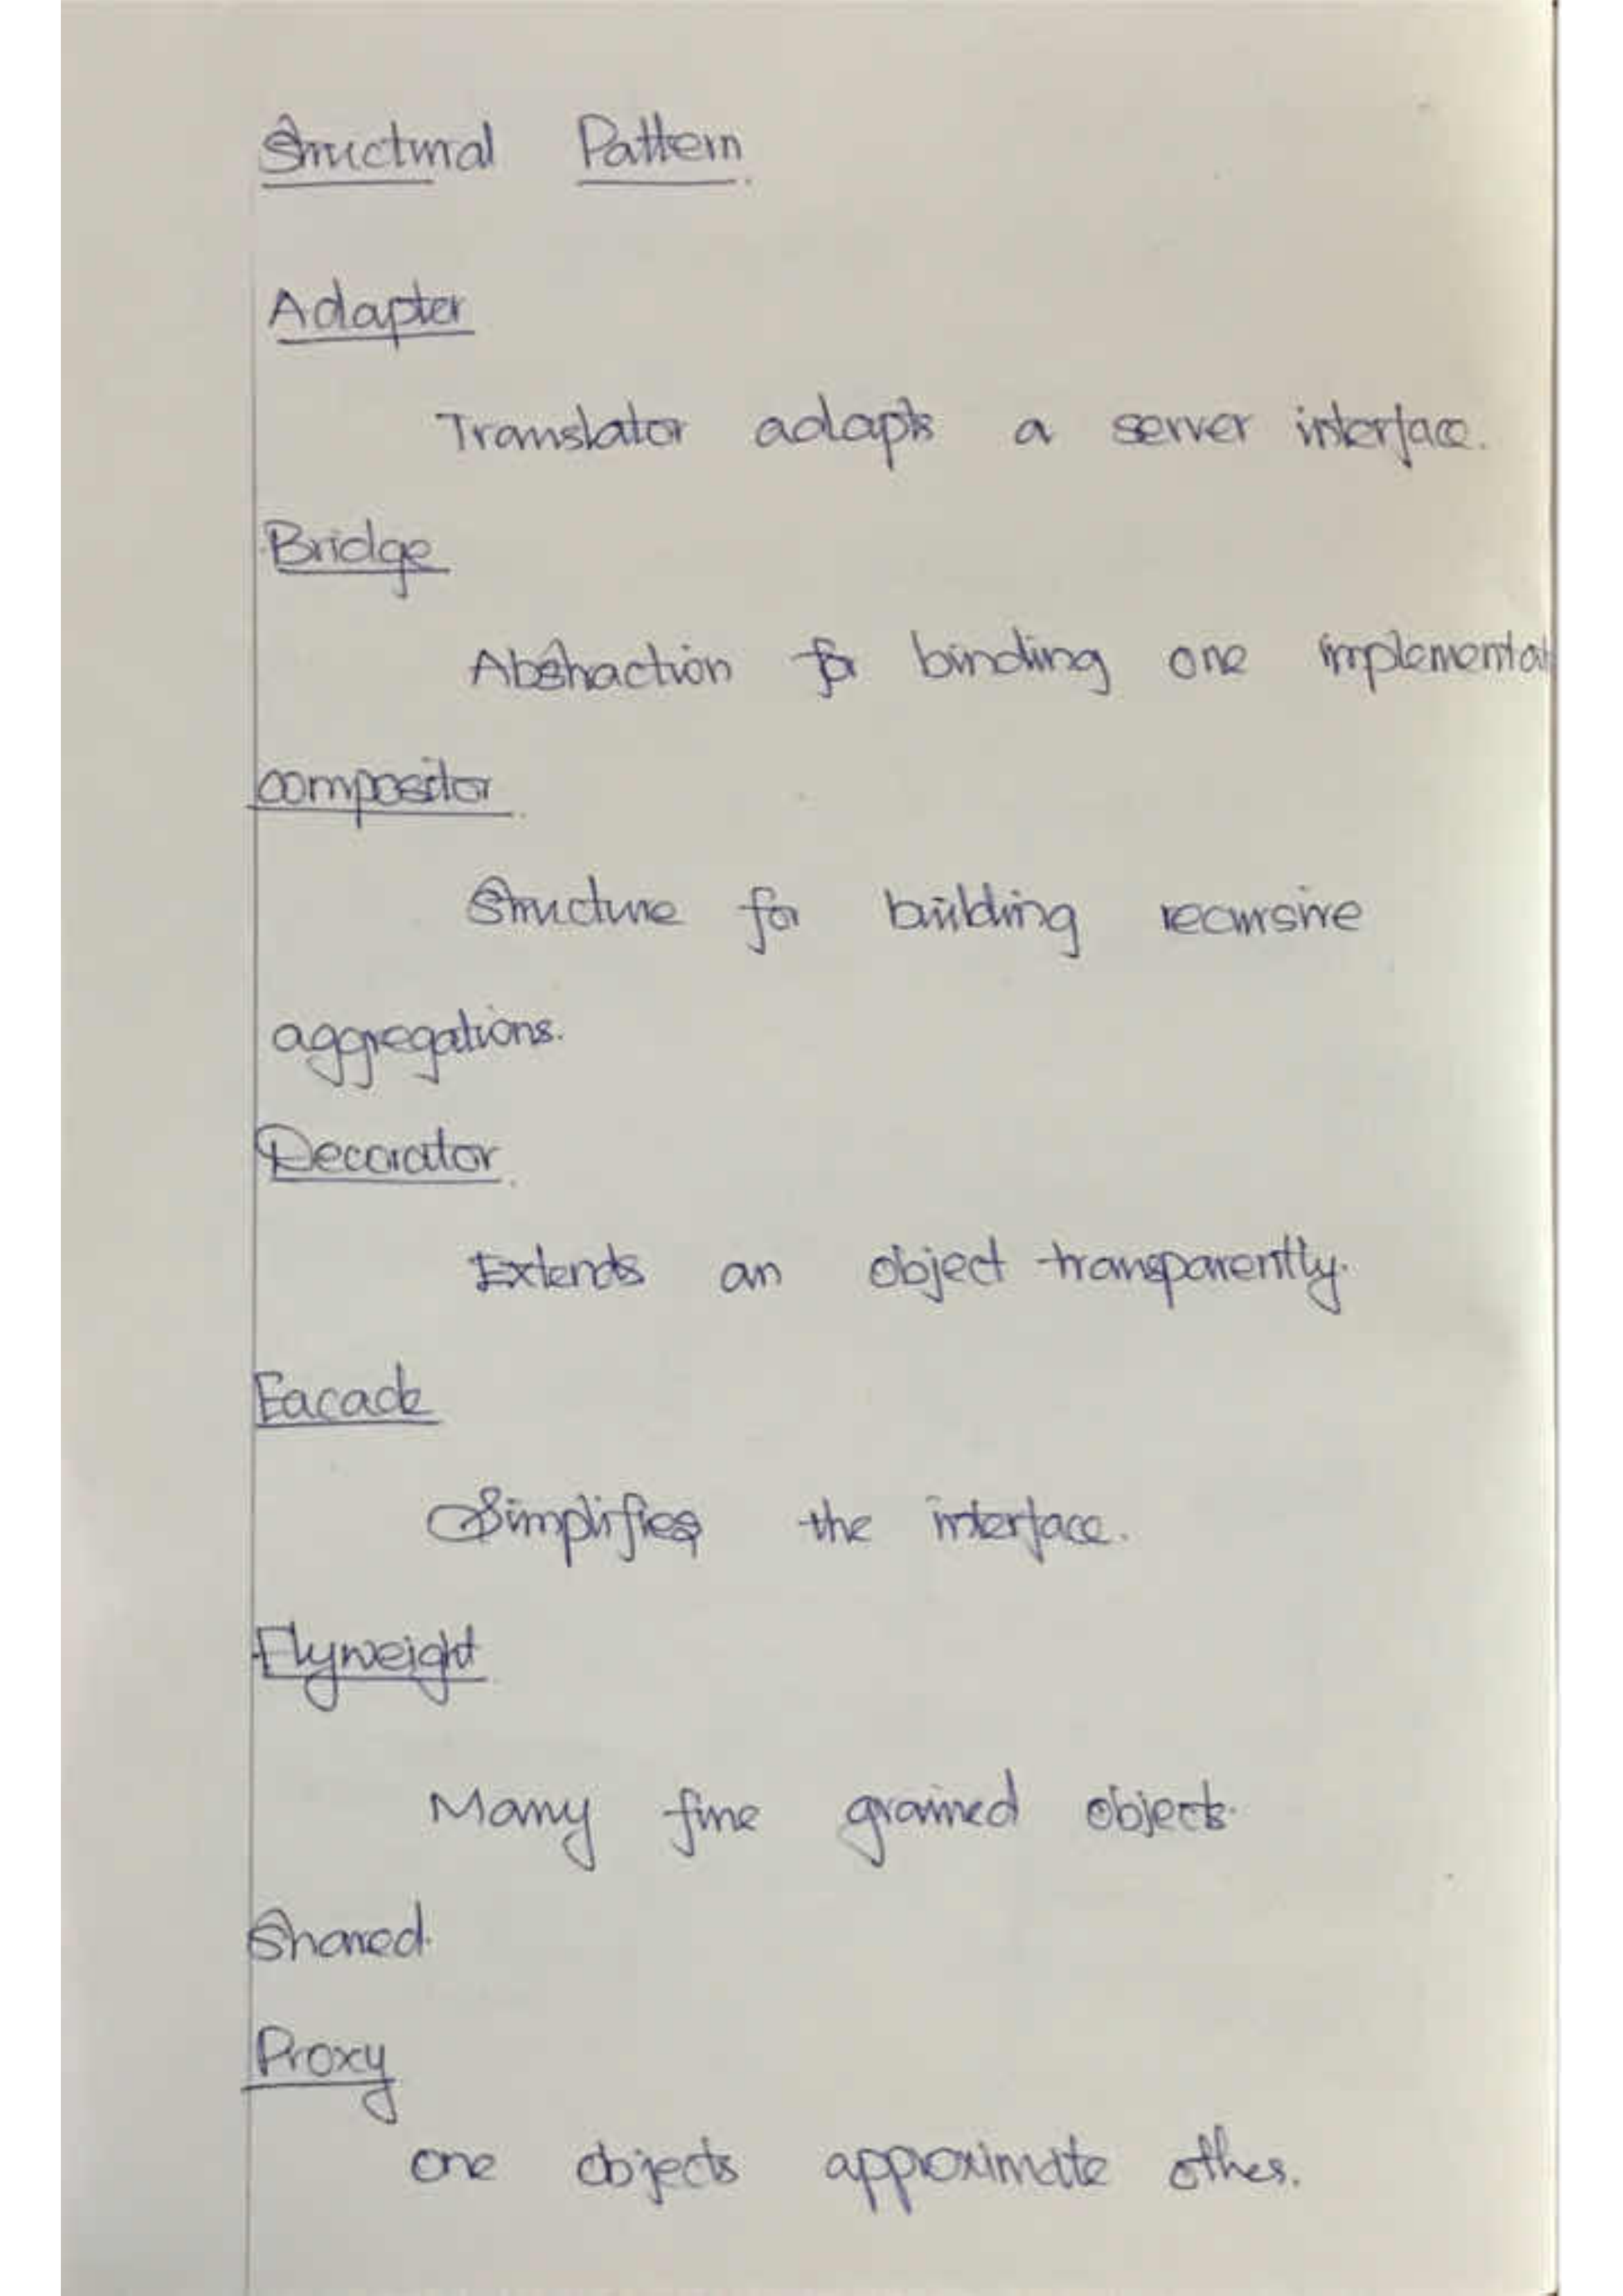 Structural Pattern.
Adapter
Translator adapts a server interface.
Bridge
Abstraction for binding one implementat
compositor.
Structure for building recursive
aggregations.
Decorator.
Extends an object transparently.
Facade
Simplifies the interface.
Flyweight
Many fine grained objects.
Shared.
Proxy
one objects approximate other.